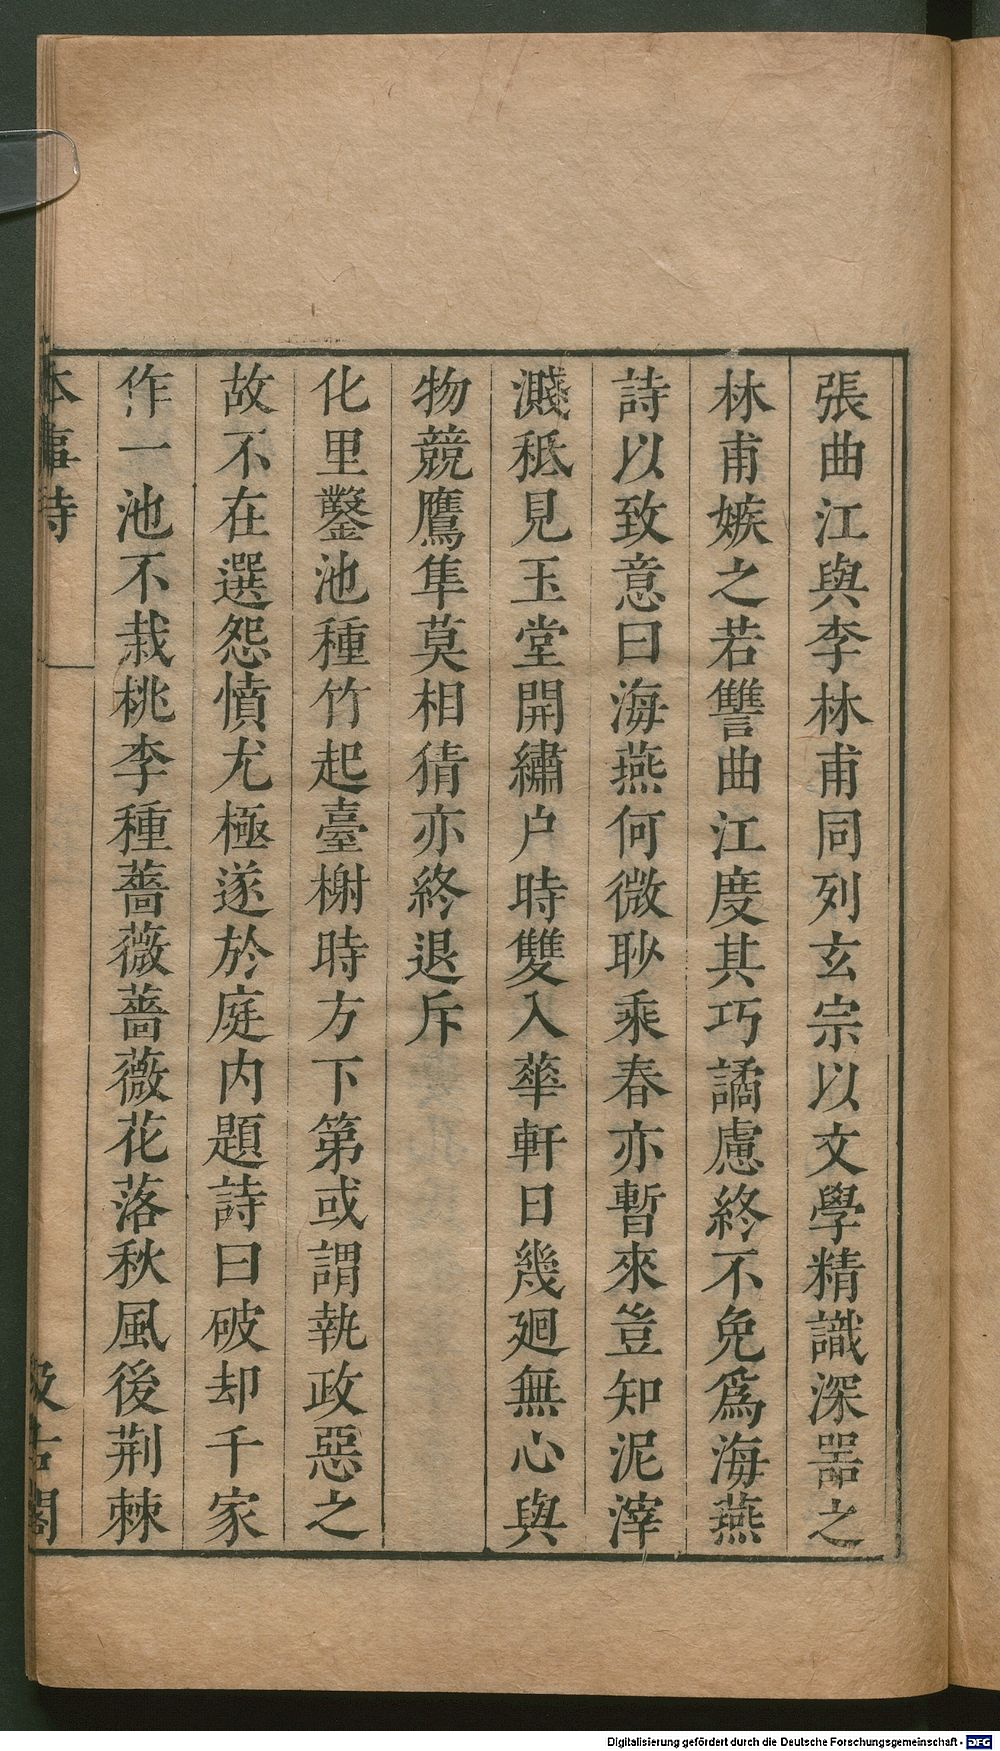 張曲江與李林甫同列玄宗以文學精識深器之
林甫嫉之若讐曲江度其巧譎慮終不免爲海燕
詩以致意曰海燕何微眇乘春亦暫來豈知泥滓
濺秪見玉堂開繡户時雙入華軒日幾廻無心與
物競鷹隼莫相猜亦終退斥
化里鑿池種竹起臺榭時方下第或謂執政惡之
故不在選怨憤尤極遂於庭内題詩曰破却千家
作一池不栽桃李種薔薇薔薇花落秋風後荆棘
本事詩
汲古閣
Digitalisierung gefördert durch die Deutsche Forschungsgemeinschaft - DFG